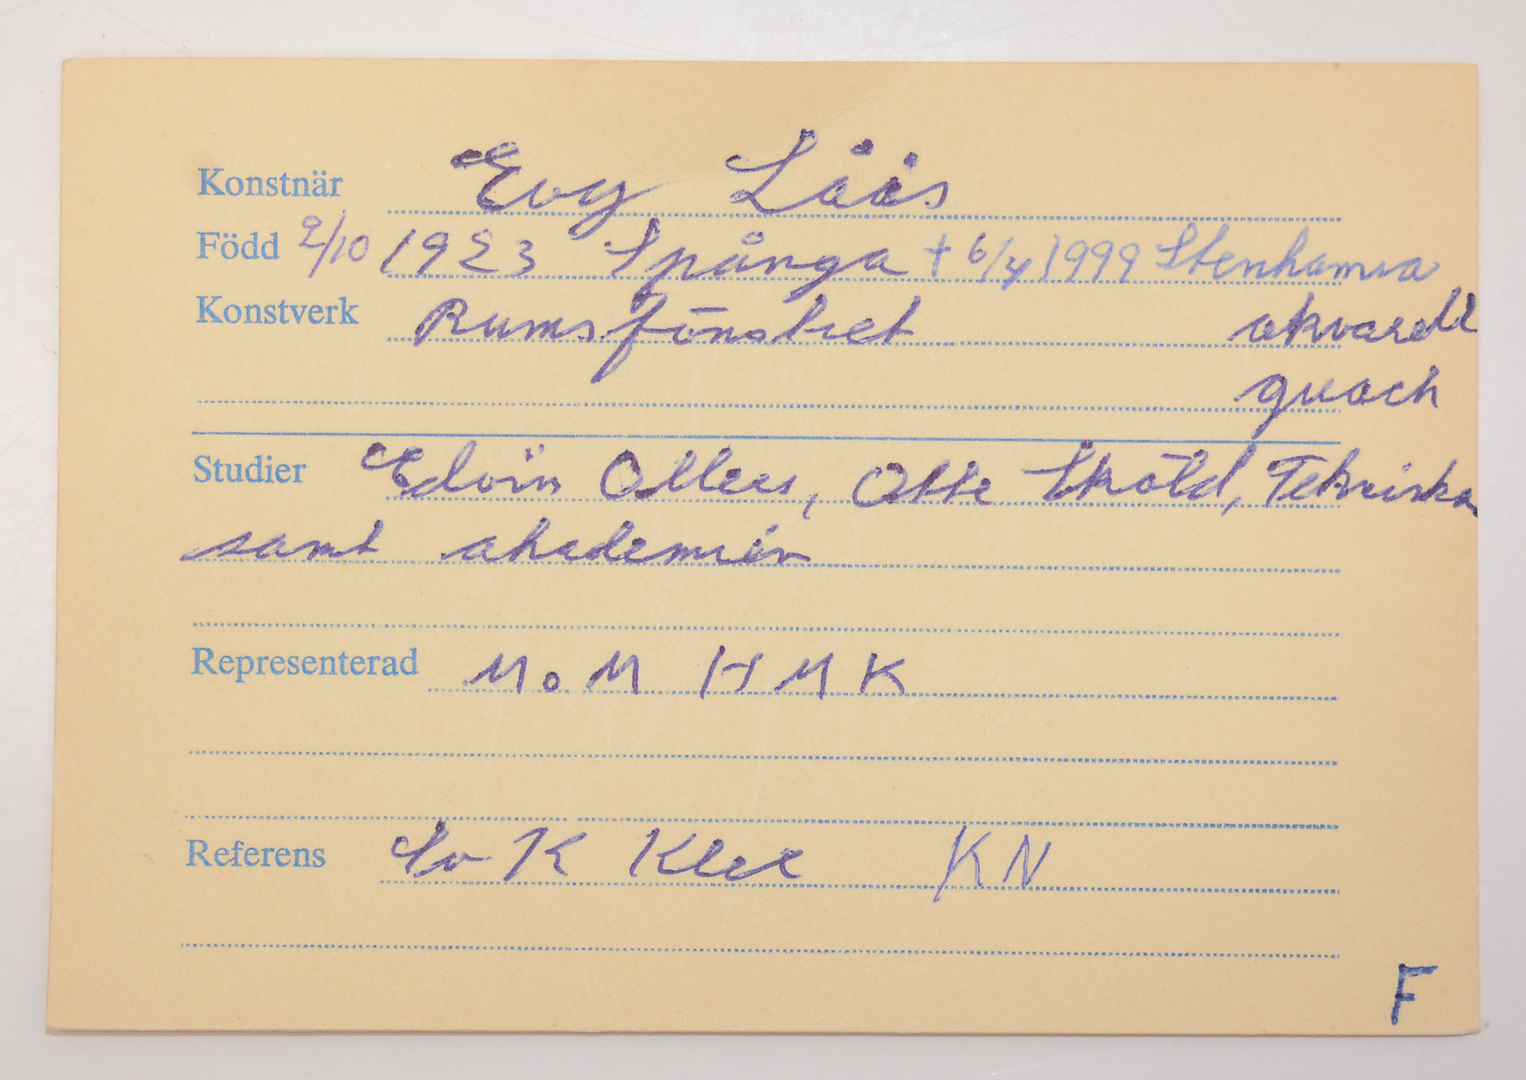 Konstnär Evy Låås
Född 2/10 1923 Spånga + 6/4 1999 Stenhamra
Konstverk Rumsfönstret akvarell
guach
Studier Edvin Ollers, Otte Sköld, Tekniska
samt akademien
Representerad MoM HMK
Referens Sv K Klex KN
F